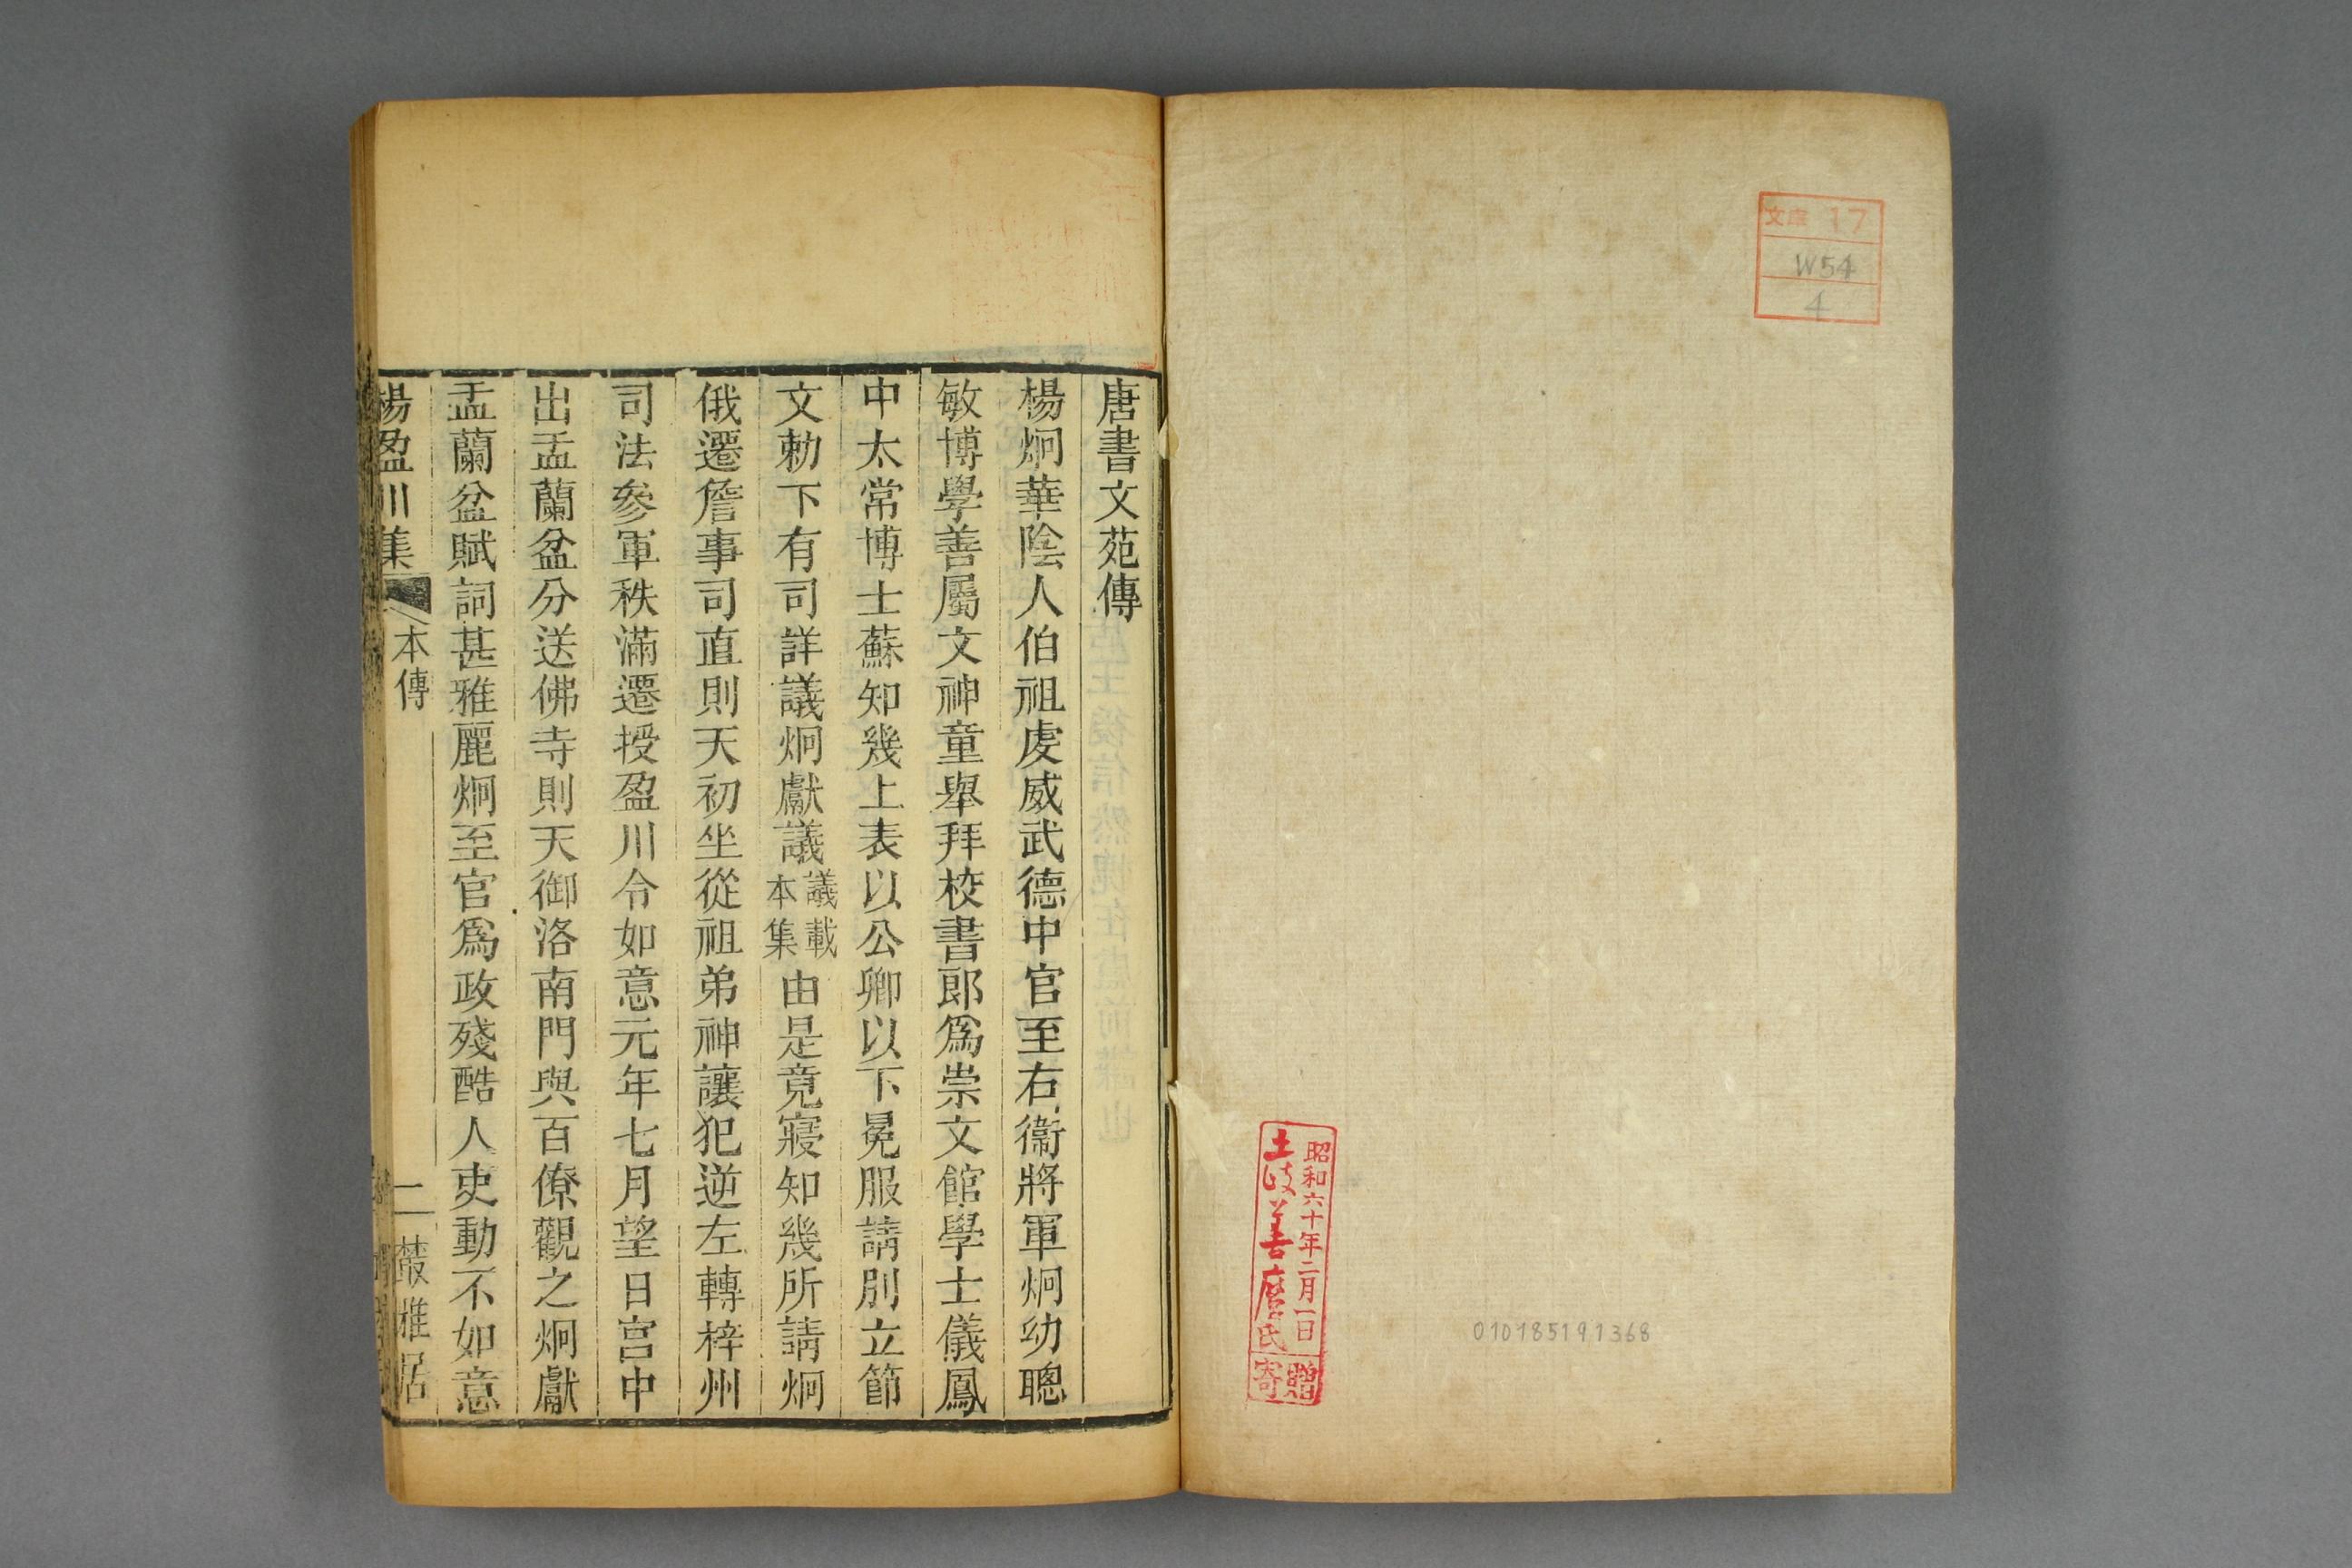 文庫 17
W54
4
昭和六十年二月一日
土岐善麿氏
寄贈
010185191368
唐書文苑傳
楊炯華陰人伯祖虔威武德中官至右衞將軍炯幼聰
敏博學善屬文神童舉拜校書郎爲崇文館學士儀鳳
中太常博士蘇知幾上表以公卿以下冕服請別立節
文勅下有司詳議炯獻議議載本集由是竟寢知幾所請炯
俄遷詹事司直則天初坐從祖弟神讓犯逆左轉梓州
司法參軍秩滿遷授盈川令如意元年七月望日宮中
出盂蘭盆分送佛寺則天御洛南門與百僚觀之炯獻
盂蘭盆賦詞甚雅麗炯至官爲政殘酷人吏動不如意
楊盈川集 本傳 二 叢雅居